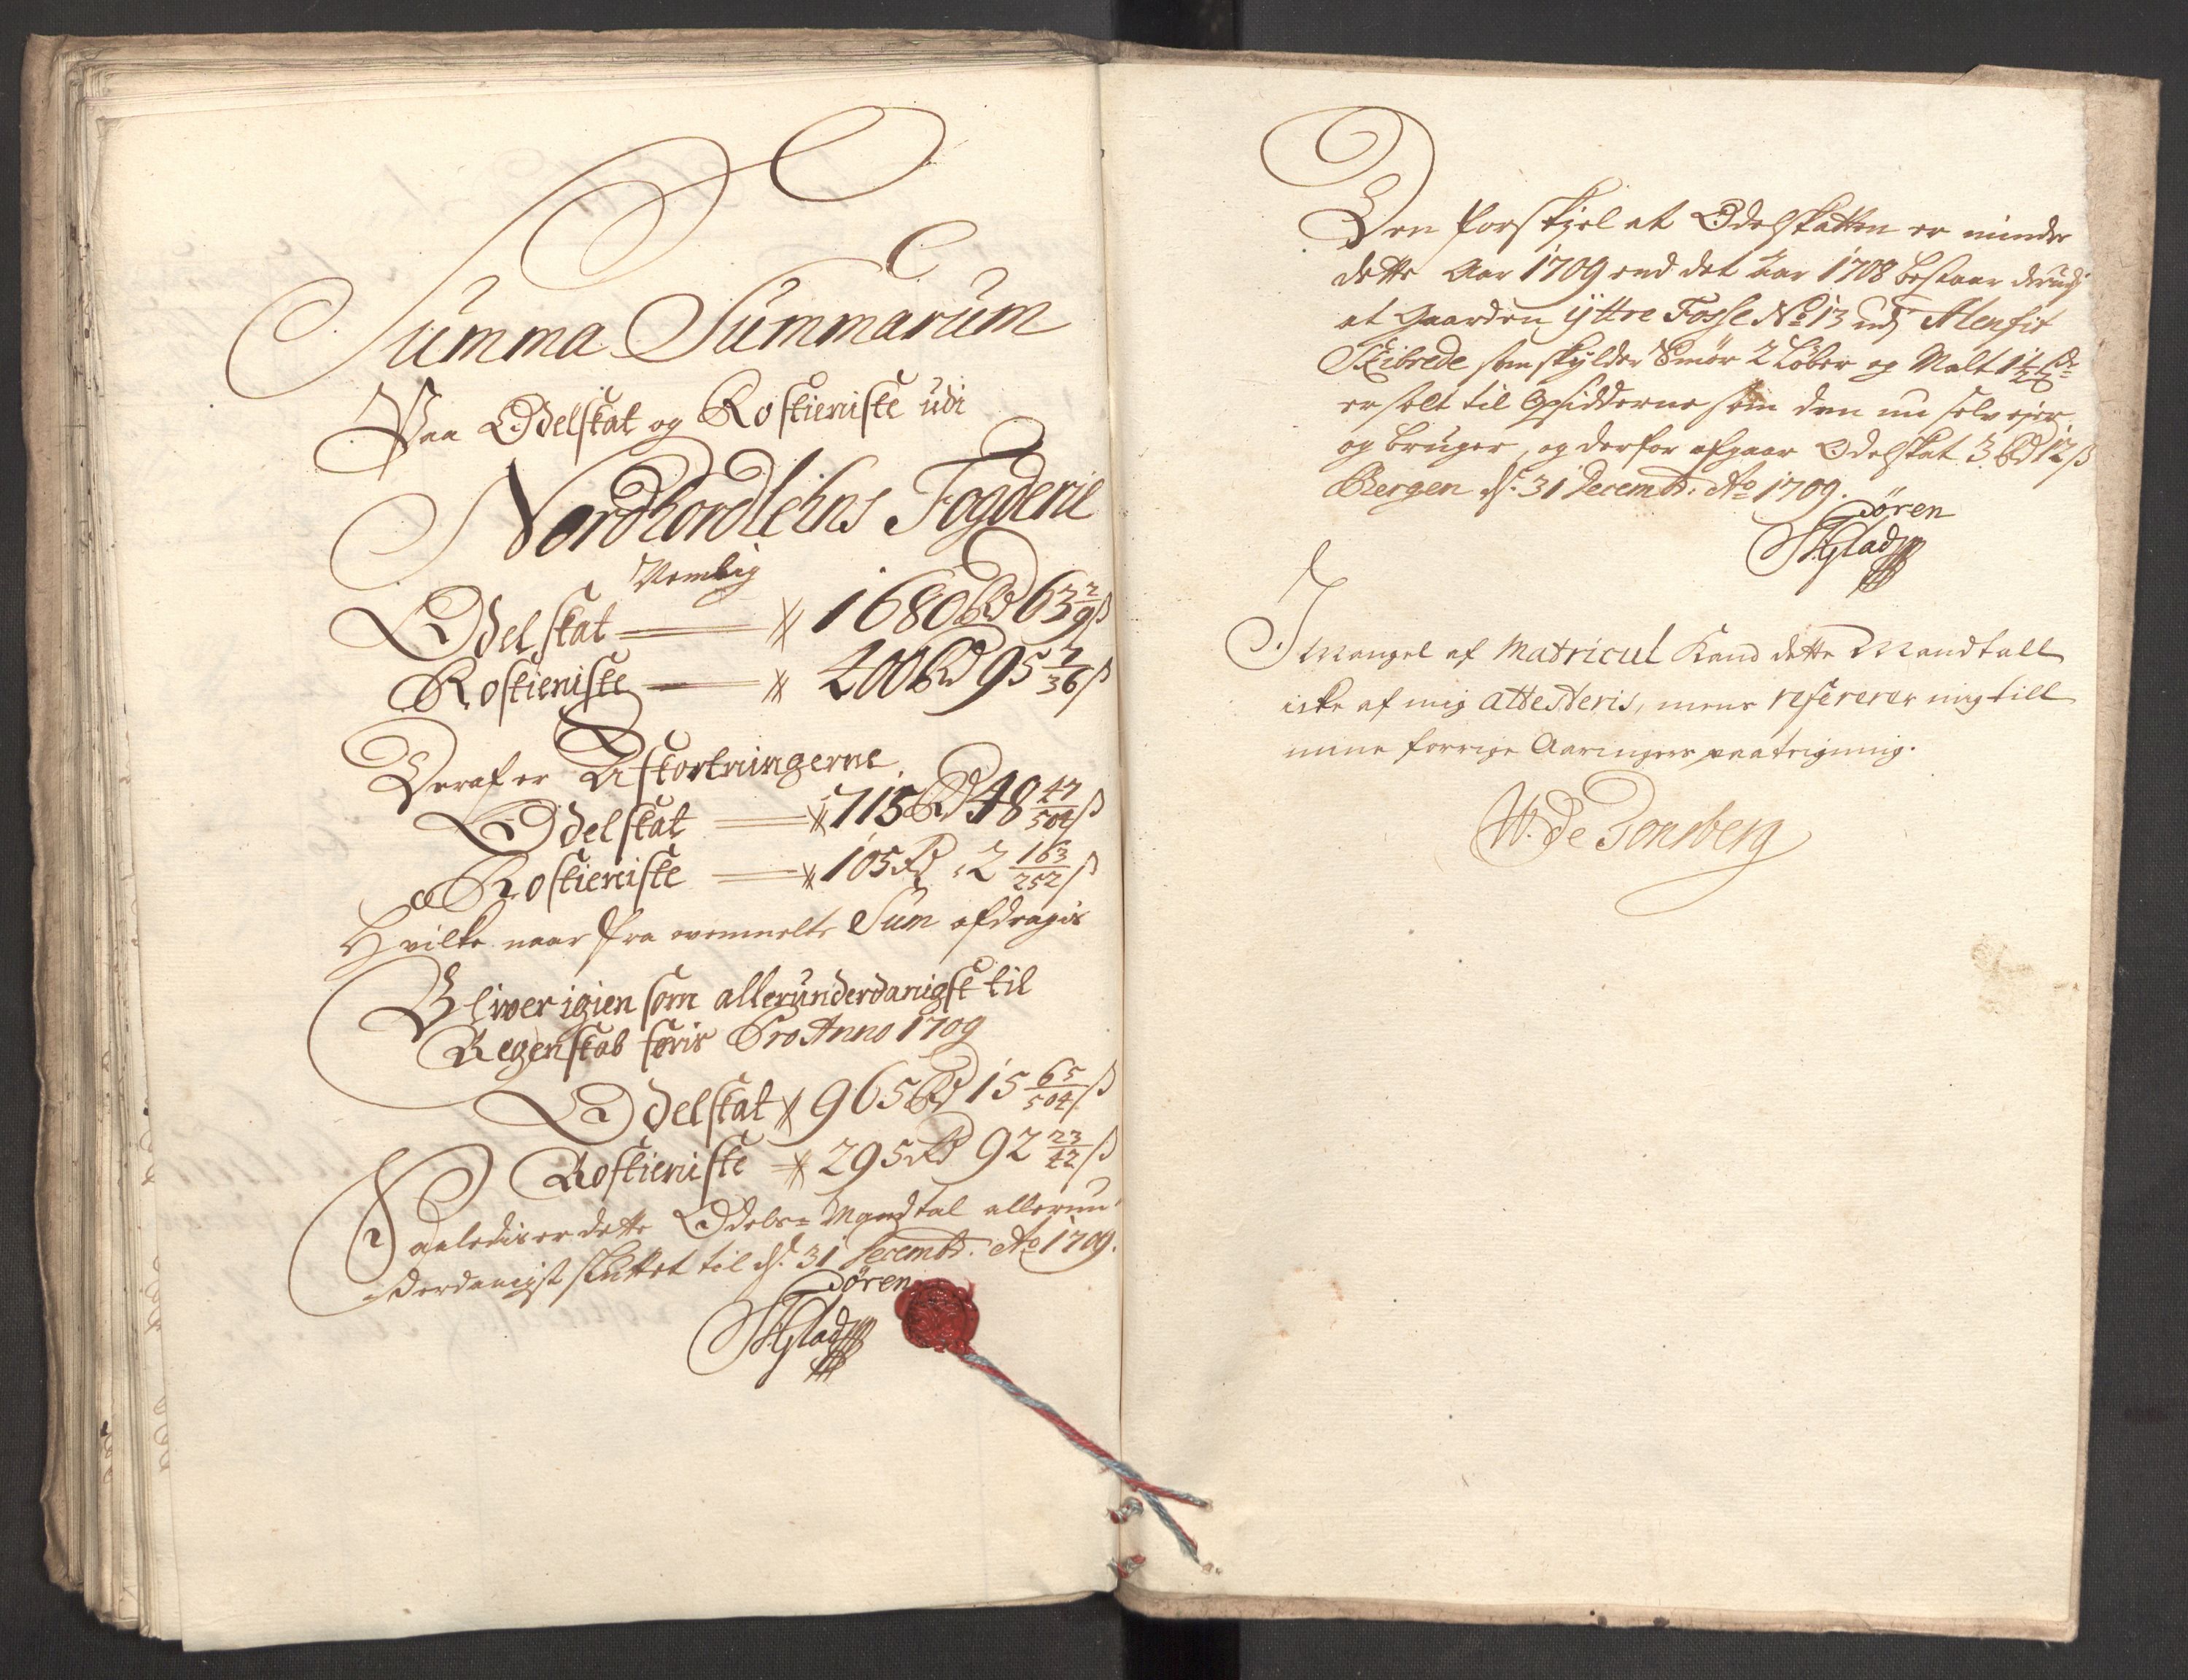 Summa Summarum
Paa Odelskat og Rostieniste udi
Nordhordlehns Fogderie
Nemblig
Odelskat — 1680 Rd 63 2/9 ß
Rostieniste — 400 Rd 95 7/36 ß
Deraf er Afkortningerne
Odelskat — 715 Rd 48 47/504 ß
Rostieniste — 105 Rd 2 163/252 ß
Hvilke naar fra ovenmelte Sum afdragis
Bliver igien som allerunderdanigst til
Regenskab føris Pro Anno 1709
Odelskat 965 Rd 15 65/504 ß
Rostieniste 295 Rd 92 23/42 ß
Saaledis er dette Odels Mandtal allerun
derdanigst sluttet til d. 31 Decembr. Ao 1709.
Søren
Glad
Den forskjel at Odelskatten er minder
dette Aar 1709 end det Aar 1708 bestaar derudj
at Gaarden yttre Fosse No 13 udj Alenfit
Skibrede som skylder Smør 2 Løber og Malt 1 1/2
er solt til Opsidderne som den nu selv ejer
og bruger, og derfor afgaar Odelskat 3 Rd 12 ß
Bergen d. 31 Decembr. Ao 1709.
Søren
Glad
I Mangel af Matricul Kand dette Mandtall
icke af mig attesteris, mens refererer mig till
mine forrige Aaringers paategning.
W. de Tonsberg